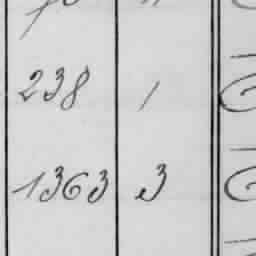 238 1
1363 3